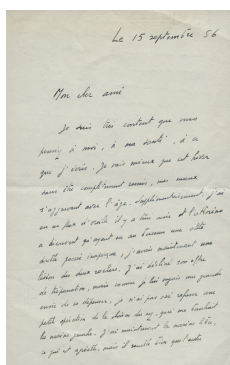 Le 15 septembre 56
Mon cher ami
Je suis très content que vous
pensiez à moi, à ma santé, à ce
que j'écris. Je vais mieux que cet hiver
sans être complètement remis, une
s'aggravant avec l'âge. Supplémentairement j'ai
eu un peu d'otite il y a
a découvert qu'ayant eu au
droite passé inaperçu, j'avais maintenant une
des deux rochers, j'ai décliné son offre
de trépanation, mais comme je lui voyais une grande
envie de se dépenser, je n'ai pas osé refuser une
petite opération de la cloison du nez, qui me bouchait
la narine gauche. J'ai maintenant la narine
ce qui est agréable, mais il semble bien que l'autre